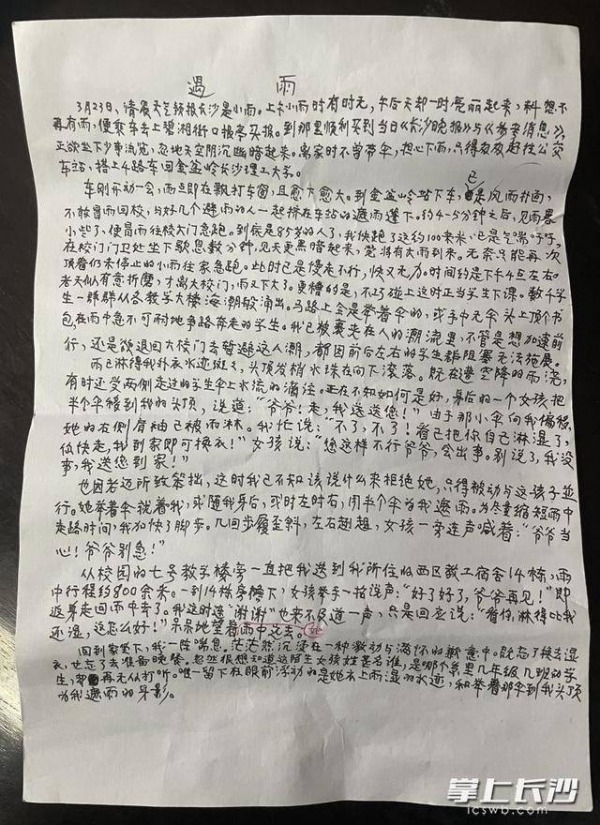 遇 雨
3月23日，清晨天气预报长沙是小雨。上午小雨时有时无，午后天却一时亮丽起来，料想不
再有雨，便乘车去上望湘街口报亭买报。到那里顺利买到当日《长沙晚报》与《参考消息》，
正欲坐下少事浏览，忽地天空阴沉幽暗起来。离家时不曾带伞，担心下雨，只得夜夜赶往公交
车站，搭上4路车回金盆岭长沙理工大学。
车刚开动一会，雨点即在飘打车窗，且愈大愈大。到金盆岭站下车，已是风雨扑面，
不敢冒雨回校，与好几个避雨的人一起挤在车站的遮雨蓬下。约4-5分钟之后，见雨暴
小些了，便冒雨往校大门急跑。到底是85岁的人了，我快跑了这约100来米，已是气喘吁吁，
在校门门卫处坐下歇息数分钟，见天更黑暗起来，将有大雨到来。无奈只能再次
顶着仍未停止的小雨往家急跑。此时已是慢走不行，快又无力。时间约是下午4点左右。
老天似有意折磨，才离大校门，雨又下大了。更糟的是，不巧碰上这时正当学生下课。数千学
生一群群从各教学大楼海潮般涌出。马路上全是举着伞的，或手中无伞头上顶个书
包，在雨中急不可耐地争路奔走的学生。我已被裹夹在人的潮流里，不管是想加速前
行，还是欲退回大校门去暂避这人潮，都因前后左右的学生群阻塞无法施展。
雨已淋得我外衣水迹斑斑，头顶发梢水珠在向下滚落。既在遭空降的雨浇，
有时还受两侧走过的学生伞上水流的滴注。正在不知如何是好，身后的一个女孩把
半个伞移到我的头顶，说道：“爷爷！走，我送送您！”由于那小伞向我偏移，
她的右侧肩袖已被雨淋。我忙说：“不了，不了！看已把你自己淋湿了，
你快走，我到家即可换衣！”女孩说：“您这样不行爷爷，会出事。别说了，我没
事，我送您到家！”
也因老迈所致笨拙，这时我已不知该说什么来拒绝她，只得被动与这孩子並
行。她举着伞就着我，或随我身后，或时左时右，用半个伞为我遮雨。为尽量缩短雨中
走路时间，我加快了脚步。几回步履歪斜，左右趔趄，女孩一旁连声喊着：“爷爷，当
心！爷爷别急！”
从校园的七号教学楼旁一直把我送到我所住的西区教工宿舍14栋，雨
中行程约800余米。一到14栋房檐下，女孩举手一招说声：“好了好了，爷爷再见！”即
返身走回雨中去了。我这时连“谢谢”也来不及道一声，只是回应说：“看你，淋得比我
还湿，这怎么好！”呆呆地望着她雨中远去。
回到家坐下，我一阵喘息。茫茫然沉浸在一种激动与满怀的歉意中。既忘了换去湿
衣，也忘了去准备晚餐。忽然很想知道这陌生女孩姓甚名谁，是哪个系里几年级几班的学
生，却再无从打听。唯一留下在眼前浮动的是她衣上雨湿的水迹，和举着那伞到我头顶
为我遮雨的身影。
掌上长沙
icswb.com